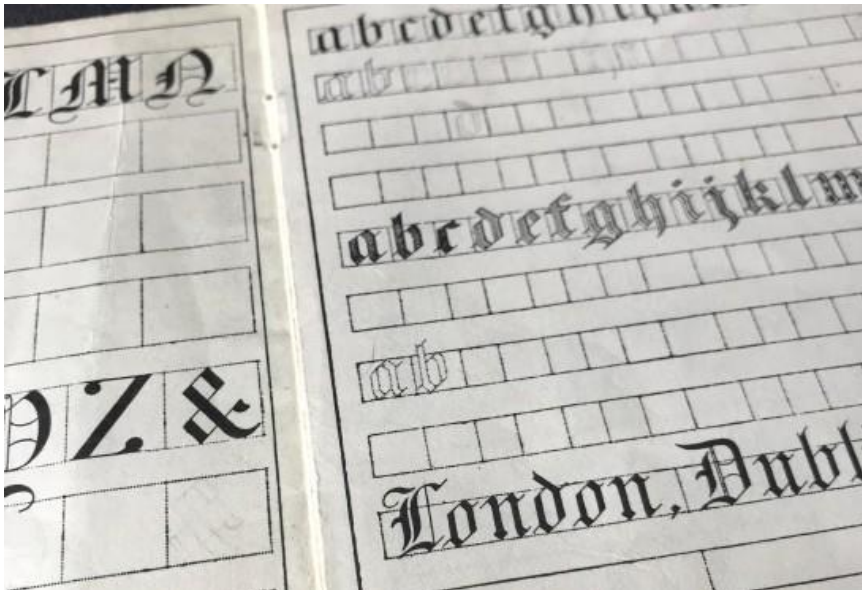 L M N
Y Z &
a b c d e f g h i j k l
a b
a b c d e f g h i j k l m
a b
London, Dubl